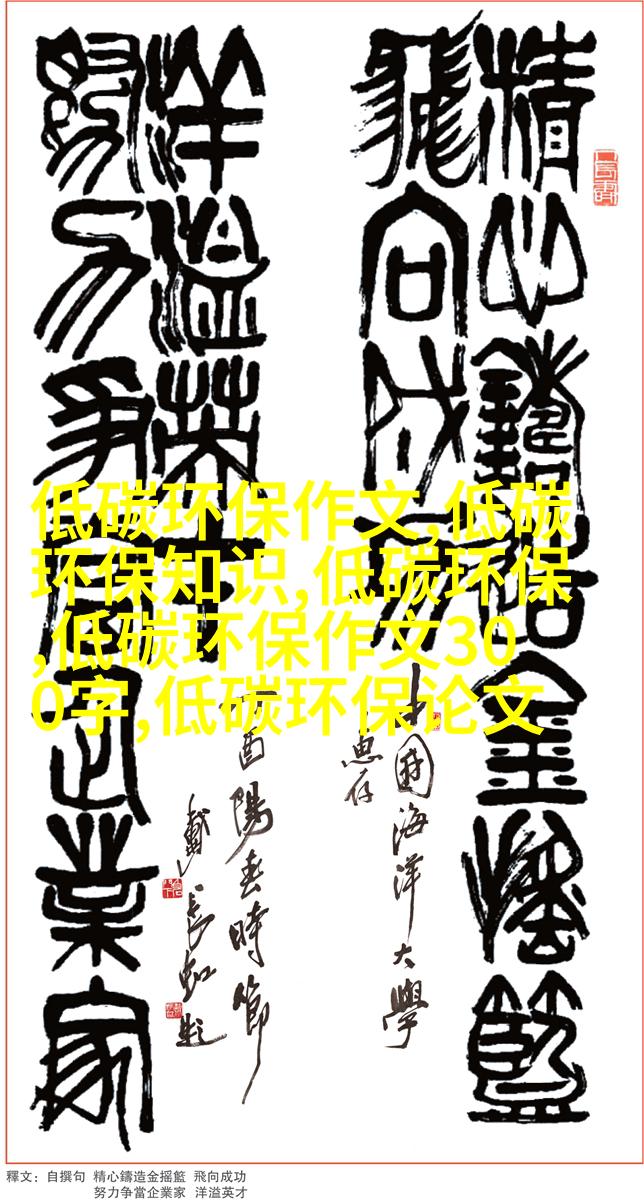 精心鑄造金摇籃
飛向成功
中國海洋大學
惠存
努力争當企業家
洋溢英才
丁酉陽春時節
戴長虹題
低碳环保作文,低碳
环保知识,低碳环保
,低碳环保作文30
0字,低碳环保论文
釋文：自撰句 精心鑄造金摇籃 飛向成功
努力争當企業家 洋溢英才